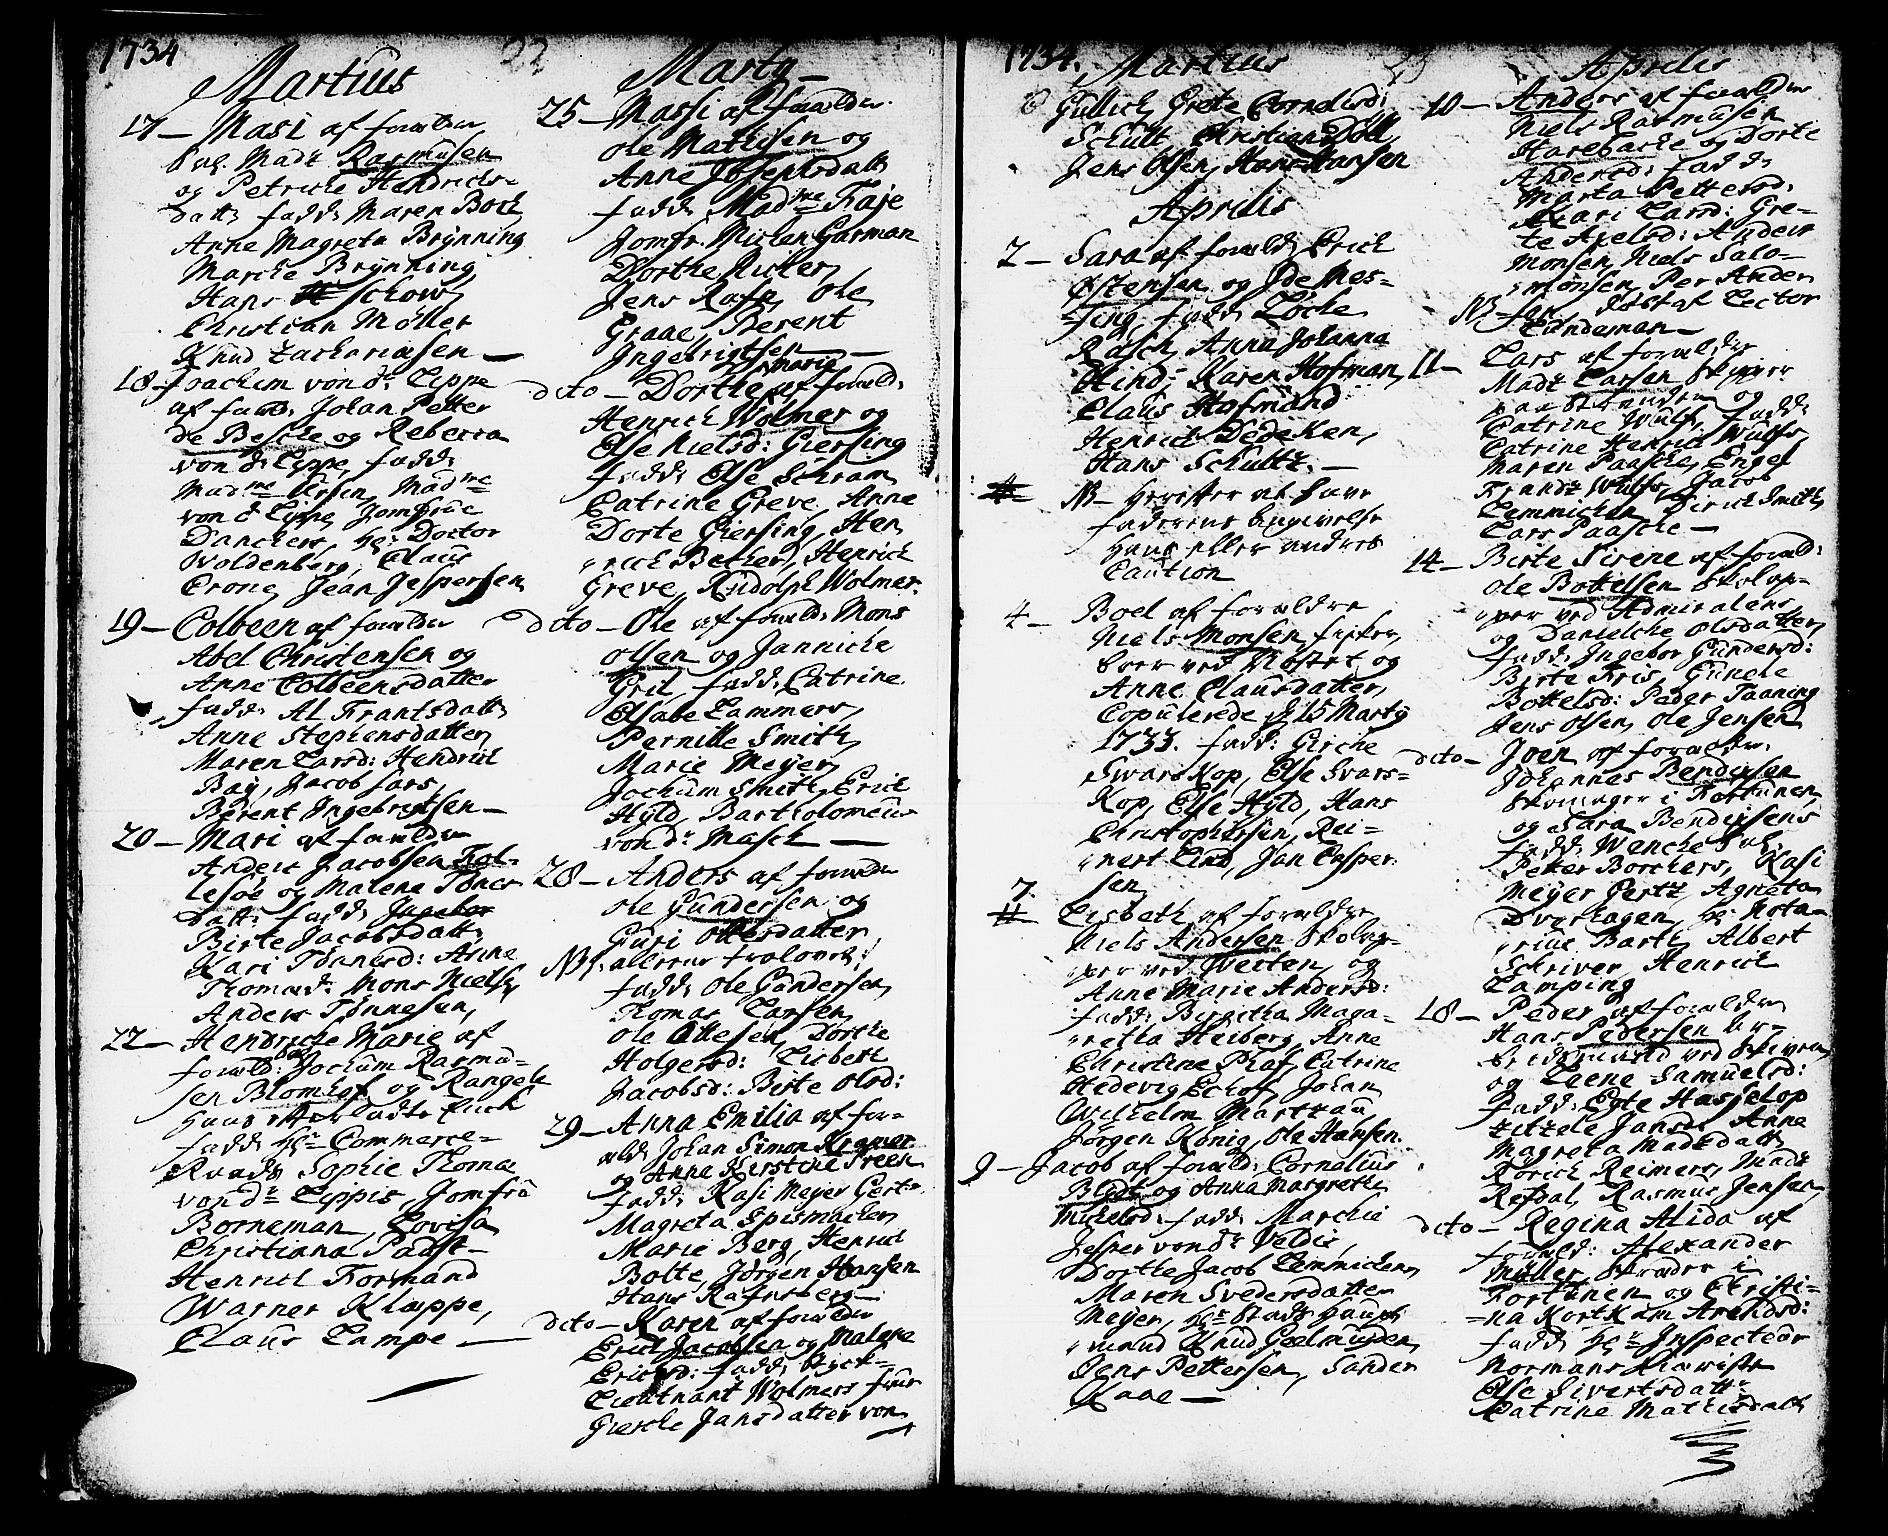 1734
22
Martius
17 — Masi af forældre
Sal. Madz Rasmusen
og Petriche Hendrichs-
datt: fadd: Maren Bock
Anne Magreta Brÿnning
Marche Brÿnning
Hans Schow
Christian Møller
Knud Zachariasen —
18 — Joachim von dr Lippe
af foræld: Johan Petter
de Besche og Rebecca
von d: Lippe, fadd:
Madme Ursin, Madme
von d Lippe, Jomfrue
Danchers, Hr: Doctor
Woldenberg, Claus
Crone, Jean Jespersen
19 — Colbeen af forældre
Abel Christensen og
Anne Colbeensdatter
fadd: Al Frantsdatt:
Anne Stephensdatter
Maren Larsd: Hendrich
Baÿ, Jacob Lars,
Berent Ingebrigtsen —
20 — Mari af forældre
Anders Jacobsen Fol-
lesøe og Malena Tønes
datt: fadd: Ingebor
Birte Jacobsdatt:
Kari Tønnesd: Anne
Thomasd: Mons Nielsen
Anders Tønnesen,
22 — Hendriche Marie af
foræld: Jochum Rasmu-
sen Blomhof og Rangele
hans efterladte Enche
fadd: Hr Commerce-
Raads Sophie Thomæ
von dr Lippis, Jomfru
Borneman, Lovisa
Christiana Paust-
Henrich Formand
Warner Klæppe,
Claus Lampe —
Martÿ —
25 — Massi af forældre
Ole Mathisen og
Anne Josephsdatt:
fadd: Madme Faÿe
Jomfr: Michen Garman
Dorthe Richer,
Jens Rafn, Ole
Graae, Berent
Ingebrigtsen —
dito — Dorthe Marie af foræld:
Henrich Wolmer og
Else Nielsd: Giersing
fadd: Else Schram
Catrine Greve, Anne
Dorte Giersing, Hen
rich Becher, Henrich
Greve, Rudolph Wolmer.
dito — Ole af foræld: Mons
Olsen og Janniche
Gril, fadd: Catrine
Elsabe Lammers,
Pernille Smith,
Marie Meÿer,
Jochum Smith, Erich
Hÿld, Bartholomeus
von dr Masch —
28 — Anders af forældre
Ole Gundersen og
Guri Ottersdatter
NB: allene trolovet:/
fadd: Ole Gundersen
Thomas Larsen,
Ole Ottesen, Dorthe
Holgersd: Lisbeth
Jacobsd: Birte Olsd:
29 — Anna Emilia af for-
æld: Johan Simon Kremer
og Anna Kirstine Preen
fadd: Kasi Meÿer Gertz,
Magreta Spismacher
Marie Berg, Henrich
Bolte, Jørgen Hansen
Hans Rafnsberg —
dito — Karen af forældre
Erich Jacobsen og Malene
Erichsd: fadd:
Lieutnant Wolmers frue
Giertche Jansdatter von
1734.
23
Martius
Gullich, Grete Cornelisd:
Schult, Christian Döll
Jens Olsen, Hans Hansen
Aprilis
2 — Sara af foræld: Erich
Østensen og Ide Mes-
sing, fadd: Løche
Rasch, Anna Johanna
Hind; Karen Hofman,
Claus Hofmand
Henrich Dedeken,
Hans Schultz. —
NB — Herefter at have
faderens begivelse
hans eller andres
Caution
4 — Boel af forældre
Niels Monsen fisker,
boer ved Nøstet og
Anne Clausdatter,
Copulerede d: 15 Martÿ
1733. fadd: Girche
Svarskop, Else Svars-
kop, Else Hÿld, Hans
Christophersen, Rei-
nert Lind, Jan Casper-
sen
7. — Lisbeth af forældre
Niels Andersen Skolop-
per ved Weiten, og
Anne Marie Andersd:
fadd: Birgitha Maga-
retha Heiberg, Anne
Christine Phaf, Catrine
Hedevig Echof, Johan
Wilhelm Martzau,
Jørgen König, Ole Hansen.
9 — Jacob af foræld: Cornelius
Blidt og Anna Margrethe
Michelsd: fadd: Marchie
Jesper von dr Veldis,
Dorthe Jacob Lemmichen,
Maren Svedersdatter
Meÿer, Hr Stads Haupt-
mand Knud Geelmuÿden,
Jens Pettersen, Sander
Kaae —
Aprilis
10 — Anders af forældre
Niels Rasmusen
Harebache og Dorte
Andersd: fadd:
Marta Pettersd:
Kari Larsd: Gre-
te Axelsd: Anders
Monsen, Niels Salo-
monsen, Per Ander
NB sen. Døbt af Lector
Lindeman —
11 — Lars af forældre
Madz Larsen Skipper
paa Stranden og
Catrine Wulfs, fadd:
Catrine Henrich Wulfs,
Maren Paasche, Engel
Frantz Wulfs, Jacob
Lemmichen, Dirich Smith,
Lars Paasche —
14 — Birte Sirene af foræld:
Ole Bottelsen Skolop-
per ved Admiralens
og Danielche Olsdatter,
fadd: Ingebor Gundersd:
Birte Fris, Gunele
Bottelsd: Peder Taaning
Jens Olsen, Ole Jensen
dito — Joen af forældre
Johannes Bendixsen
Skomager i Fortunen,
og Sara Bendixsens
fadd: Wenche Sal:
Peter Borchers, Kasi
Meÿer Gertz, Agneta
Dverhagen, Hr: Nota-
rius Barth, Albert
Schriver, Henrich
Lamping
18 — Peder af forældre
Hans Pedersen
og Laene Samuelsd:
fadd: Eyte Hasselop
Zitzele Jansd: Anne
Magreta Madzdatt:
Rorich Reimers, Madz
Refdal, Rasmus Jensen,
dito — Regina Alida af
foræld: Alexander
Müller, Skræder i
Fortunen og Christi-
na Kortkam Arendsd:
fadd: Hr Inspecteur
Normans Kieriste
Else Sivertsdatt:
Catrine Mathisdatt: